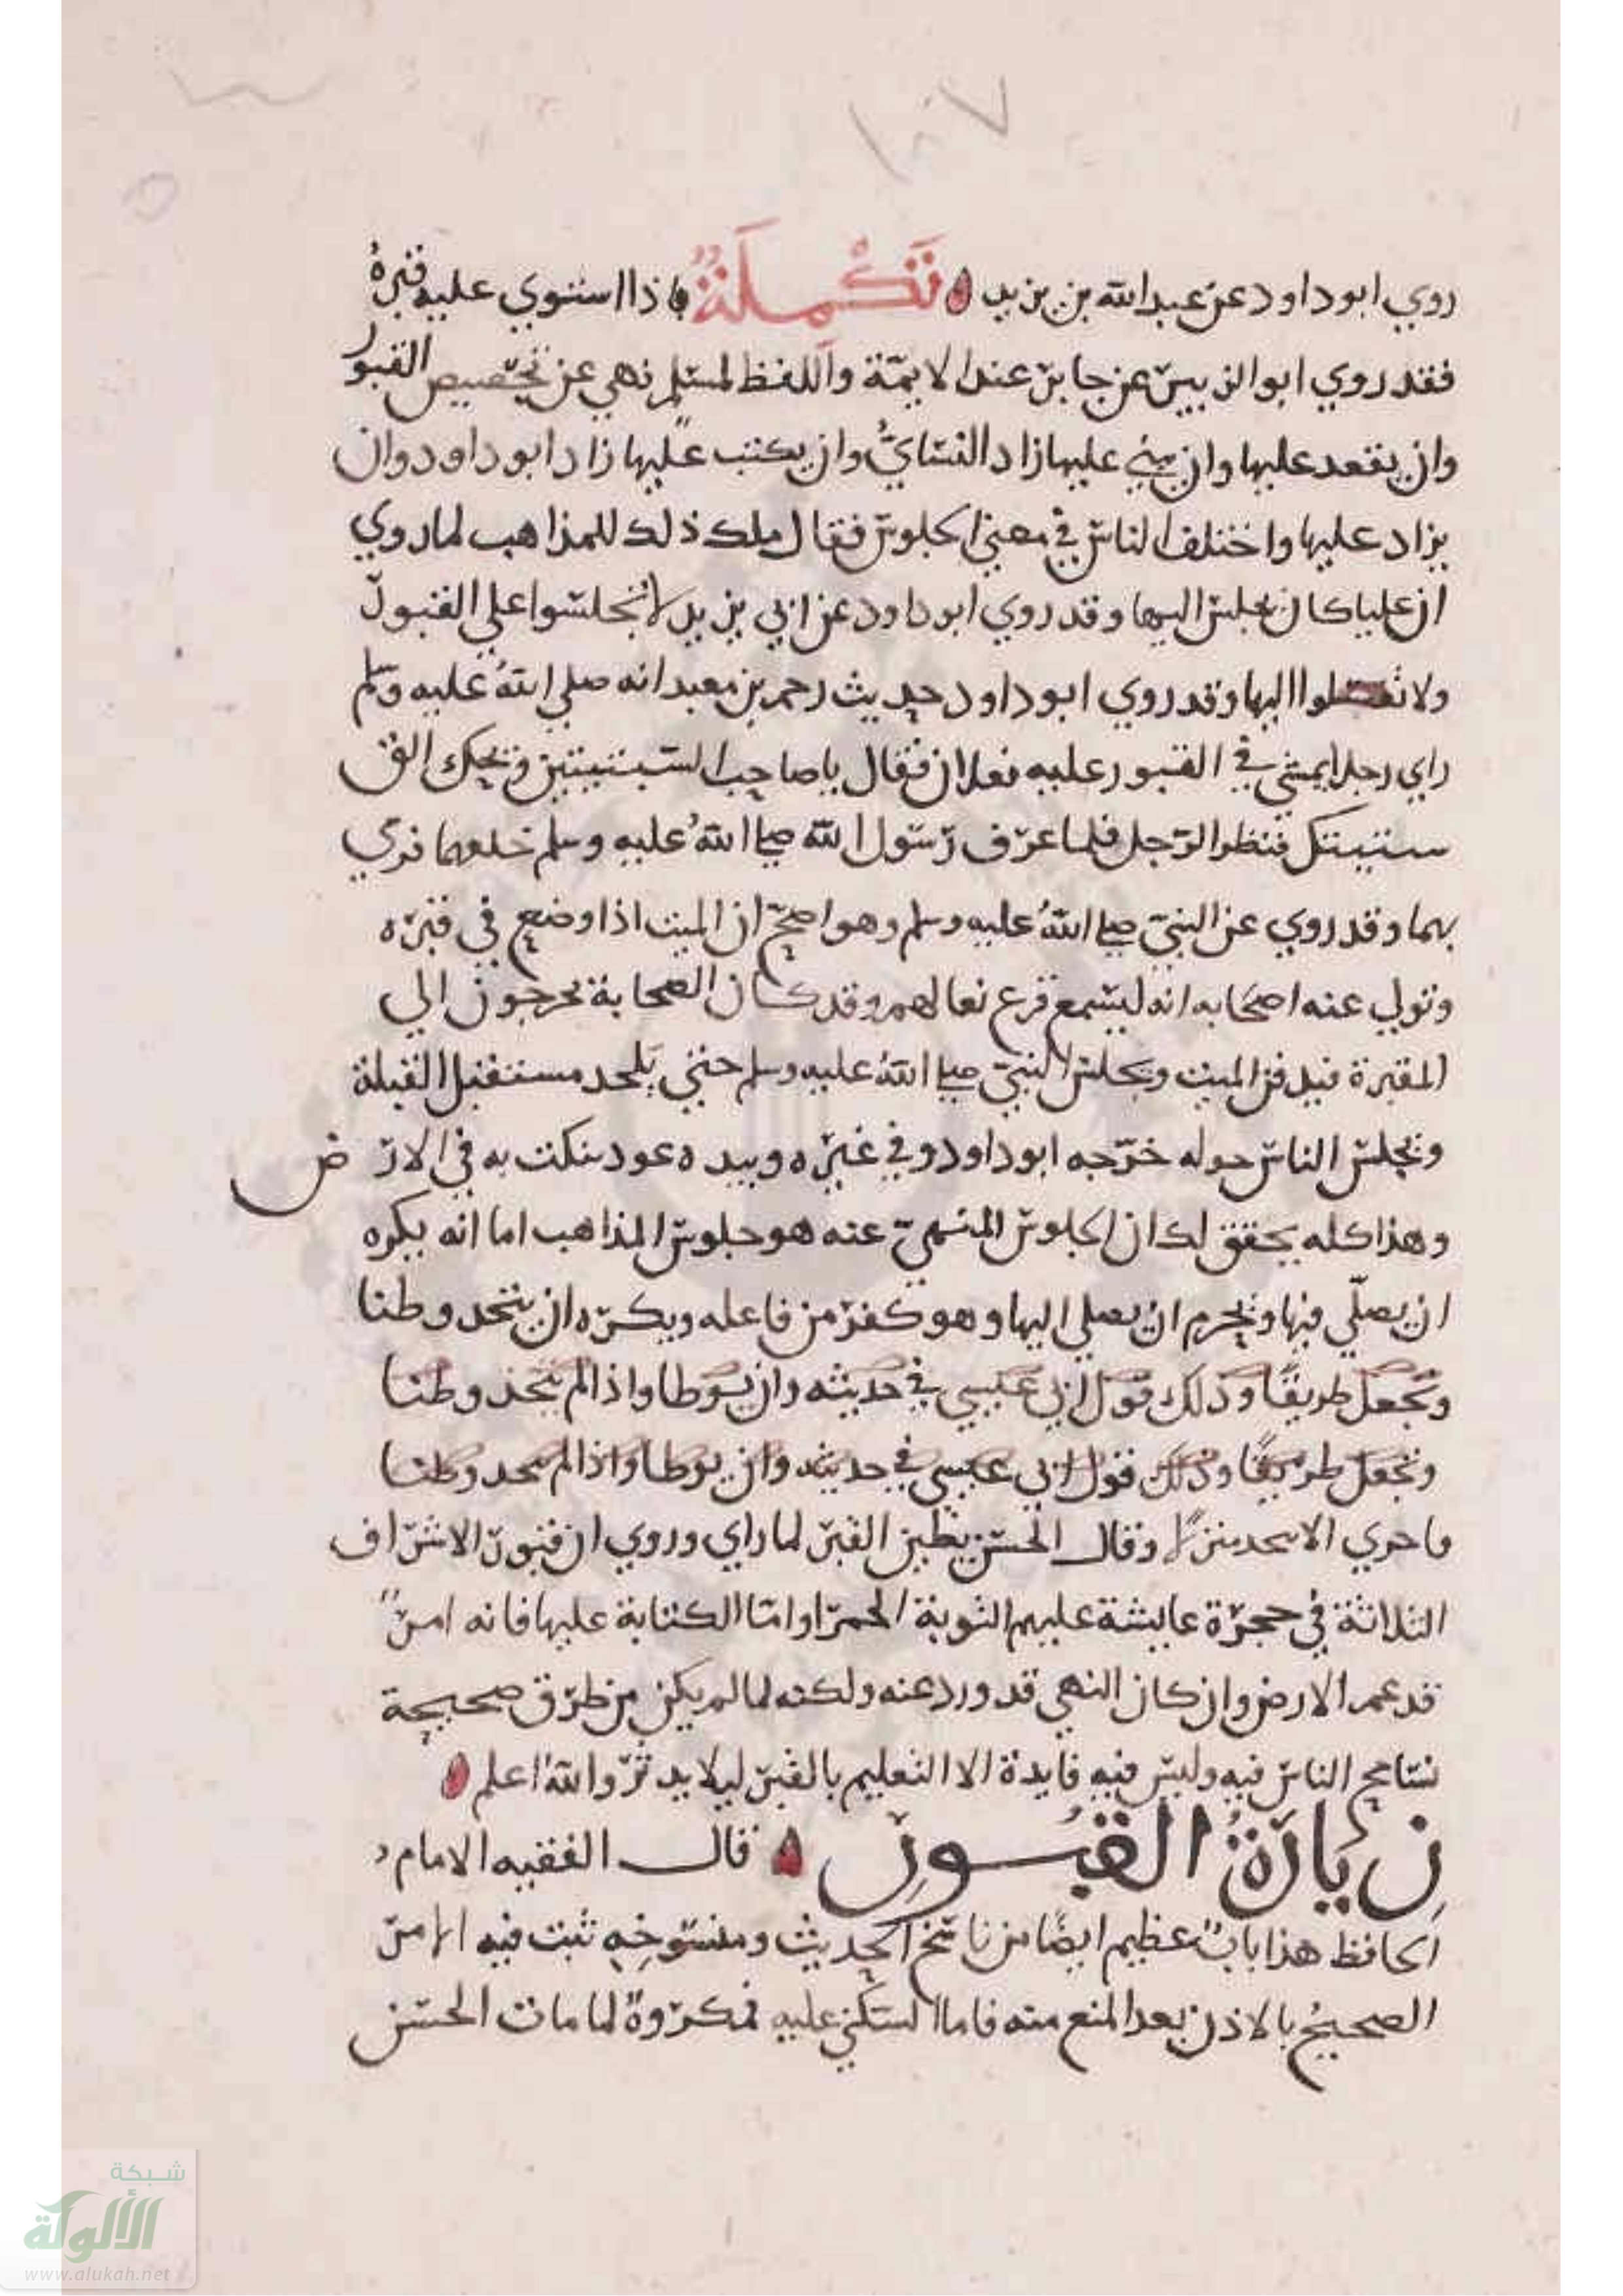 ١٠٧
روي ابو داود عن عبد الله بن يزيد تكملة فاذا استوي عليه قبره
فقد روي ابو الزبير عن جابر عند الايمة واللفظ لمسلم نهي عن تجصيص القبور
وان يقعد عليها وان يبني عليها زاد النساي وان يكتب عليها زاد ابو داود وان
يزاد عليها واختلف الناس في معني الجلوس فقال ملك ذلك للمذاهب لما روي
ان عليا كان يجلس اليها وقد روي ابو داود عن ابي يزيد لا تجلسوا علي القبور
ولا تصلوا اليها وقد روي ابو داود حديث رحم بن معبد انه صلي الله عليه وسلم
راي رجلا يمشي في القبور عليه نعلان فقال يا صاحب السبتيتين ويحك الق
سبتيتك فنظر الرجل فلما عرف رسول الله صلي الله عليه وسلم خلعهما فرمي
بهما وقد روي عن النبي صلي الله عليه وسلم وهو اصح ان الميت اذا وضع في قبره
وتولي عنه اصحابه انه ليسمع قرع نعالهم وقد كان الصحابة يخرجون الي
المقبرة فيدفن الميت ويجلس النبي صلي الله عليه وسلم حتي يلحد مستقبل القبلة
ويجلس الناس حوله خرجه ابو داود وفي غيره وبيده عود ينكت به في الارض
وهذا كله يحقق لك ان الجلوس المنهي عنه هو جلوس المذاهب اما انه يكره
ان يصلي فيها ويحرم ان يصلي اليها وهو كفر من فاعله ويكره ان يتخذ وطنا
وتجعل طريقا وذلك قول ابي عيسي في حديثه وان يوطا واذا لم يتخذ وطنا
وتجعل طريقا وذلك قول ابي عيسي في حديثه وان يوطا واذا لم يتخذ وطنا
الا وقال الحسن يطين القبر لما راي وروي ان قبور الاشراف
الثلاثة في حجرة عايشة عليهم التوبة الحمرا واما الكتابة عليها فانه امر
قد عم الارض وان كان النهي قد ورد عنه ولكنه لما لم يكن من طرق صحيحة
تسامح الناس فيه وليس فيه فايدة الا التعليم بالقبر ليلا يدثر والله اعلم
زيارة القبور قال الفقيه الامام
الحافظ هذا باب عظيم ايضا من ناسخ الحديث ومنسوخه ثبت فيه الامر
الصحيح بالاذن بعد المنع منه فاما السكني عليه فمكروه لما مات الحسن
شبكة
الألوكة
www.alukah.net